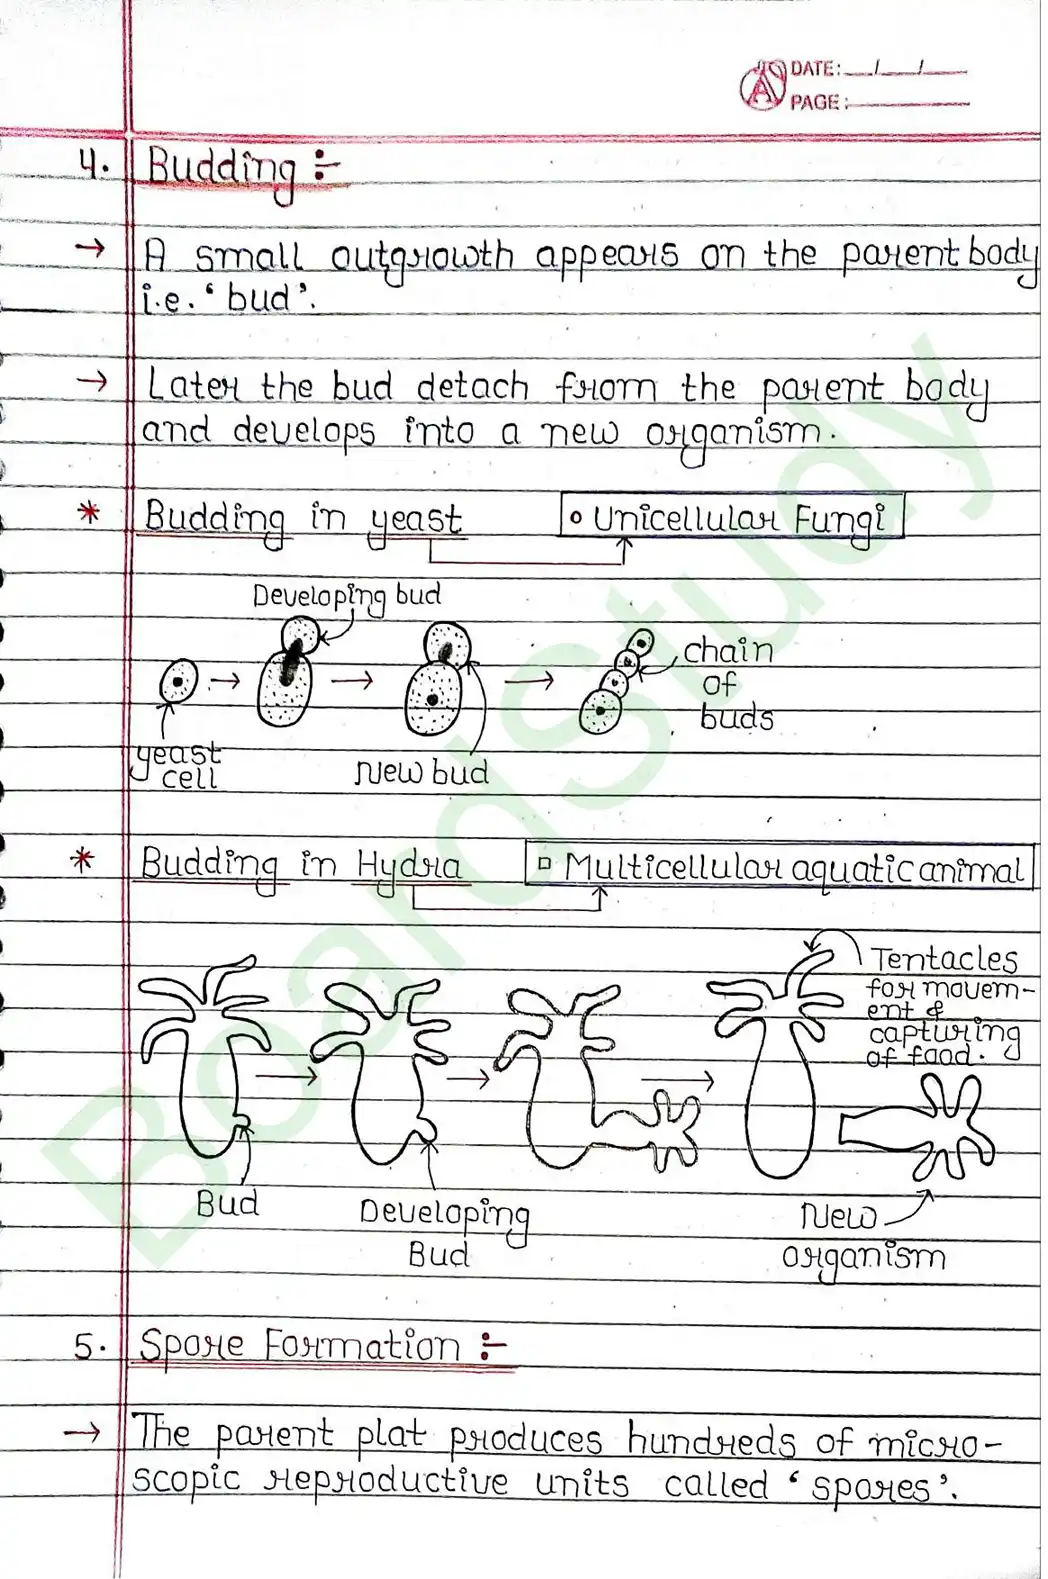 DATE: __/__/__
PAGE:
4. Budding :-
→ A small outgrowth appears on the parent body
i.e. 'bud'.
→ Later the bud detach from the parent body
and develops into a new organism.
* Budding in yeast
Unicellular Fungi
Developing bud
yeast
cell
New bud
chain
of
buds
* Budding in Hydra
Multicellular aquatic animal
Tentacles
for movem-
ent &
capturing
of food.
Bud
Developing
Bud
New
organism
5. Spore Formation :-
→ The parent plat produces hundreds of micro-
scopic reproductive units called 'spores'.
BoardStudy